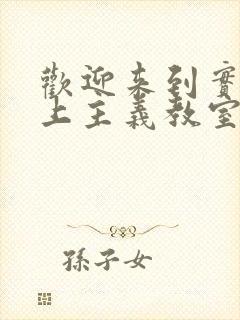 歡迎来到實
上主義教室
孫子女